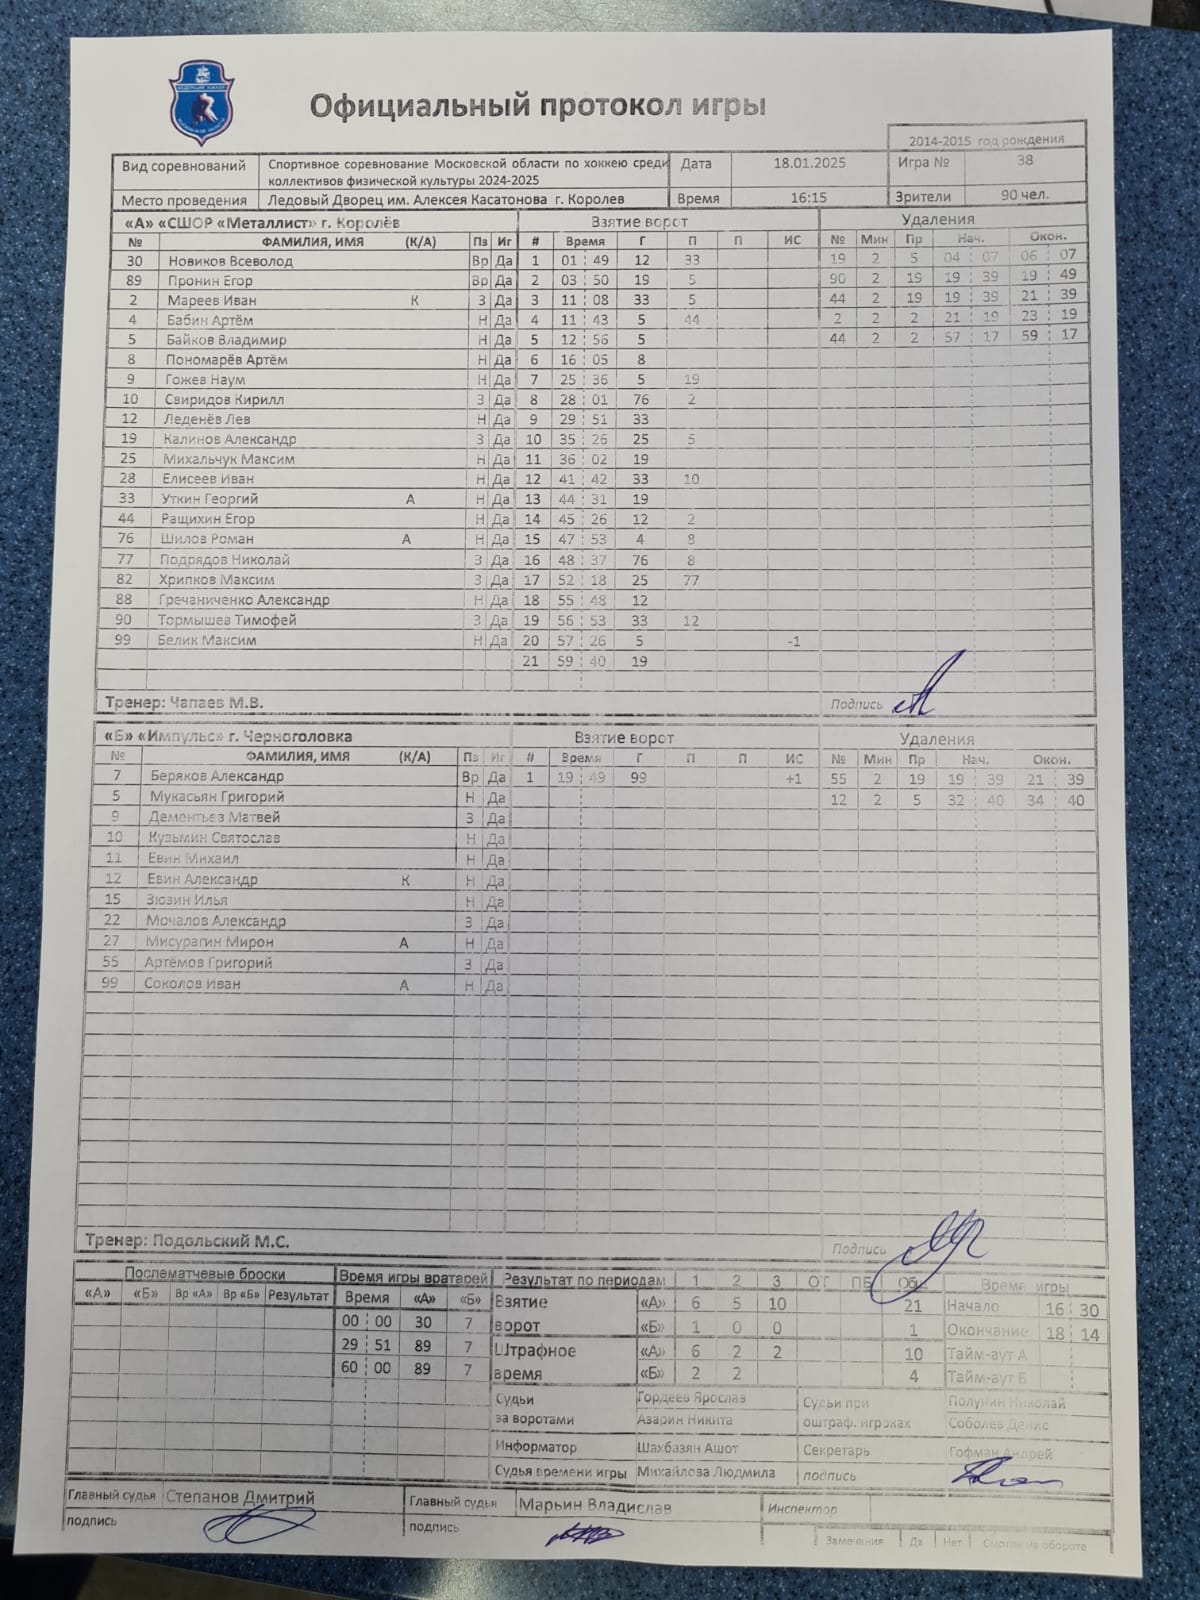 Официальный протокол игры
2014-2015 год рождения
Вид соревнований Спортивное соревнование Московской области по хоккею среди коллективов физической культуры 2024-2025 Дата 18.01.2025 Игра № 38
Место проведения Ледовый Дворец им. Алексея Касатонова г. Королев Время 16:15 Зрители 90 чел.
«А» «СШОР «Металлист» г. Королёв Взятие ворот Удаления
№ ФАМИЛИЯ, ИМЯ (К/А) Пз Иг # Время Г П П ИС № Мин Пр Нач. Окон.
30 Новиков Всеволод Вр Да 1 01 49 12 33 19 2 5 04 07 06 07
89 Пронин Егор Вр Да 2 03 50 19 5 90 2 19 19 39 19 49
2 Мареев Иван К З Да 3 11 08 33 5 44 2 19 19 39 21 39
4 Бабин Артём Н Да 4 11 43 5 44 2 2 2 21 19 23 19
5 Байков Владимир Н Да 5 12 56 5 44 2 2 57 17 59 17
8 Пономарёв Артём Н Да 6 16 05 8
9 Гожев Наум Н Да 7 25 36 5 19
10 Свиридов Кирилл З Да 8 28 01 76 2
12 Леденёв Лев Н Да 9 29 51 33
19 Калинов Александр З Да 10 35 26 25 5
25 Михальчук Максим Н Да 11 36 02 19
28 Елисеев Иван Н Да 12 41 42 33 10
33 Уткин Георгий А Н Да 13 44 31 19
44 Ращихин Егор Н Да 14 45 26 12 2
76 Шилов Роман А Н Да 15 47 53 4 8
77 Подрядов Николай З Да 16 48 37 76 8
82 Хрипков Максим З Да 17 52 18 25 77
88 Гречаниченко Александр Н Да 18 55 48 12
90 Тормышев Тимофей З Да 19 56 53 33 12
99 Белик Максим Н Да 20 57 26 5 -1
21 59 40 19
Тренер: Чапаев М.В. Подпись
«Б» «Импульс» г. Черноголовка Взятие ворот Удаления
№ ФАМИЛИЯ, ИМЯ (К/А) Пз Иг # Время Г П П ИС № Мин Пр Нач. Окон.
7 Беряков Александр Вр Да 1 19 49 99 +1 55 2 19 19 39 21 39
5 Мукасьян Григорий Н Да 12 2 5 32 40 34 40
9 Дементьев Матвей З Да
10 Кузьмин Святослав Н Да
11 Евин Михаил Н Да
12 Евин Александр К Н Да
15 Зюзин Илья Н Да
22 Мочалов Александр З Да
27 Мисурагин Мирон А Н Да
55 Артёмов Григорий З Да
99 Соколов Иван А Н Да
Тренер: Подольский М.С. Подпись
Послематчевые броски Время игры вратарей Результат по периодам 1 2 3 ОТ ПБ Общ Время игры
«А» «Б» Вр «А» Вр «Б» Результат Время «А» «Б» Взятие ворот «А» 6 5 10 21 Начало 16 30
00 00 30 7 «Б» 1 0 0 1 Окончание 18 14
29 51 89 7 Штрафное время «А» 6 2 2 10 Тайм-аут А
60 00 89 7 «Б» 2 2 4 Тайм-аут Б
Судьи за воротами Гордеев Ярослав Судьи при оштраф. игроках Полунин Николай
Азарин Никита Соболев Денис
Информатор Шахбазян Ашот Секретарь Гофман Андрей
Судья времени игры Михайлова Людмила подпись
Главный судья Степанов Дмитрий Главный судья Марьин Владислав Инспектор
подпись подпись
Замечания Да Нет Смотри на обороте